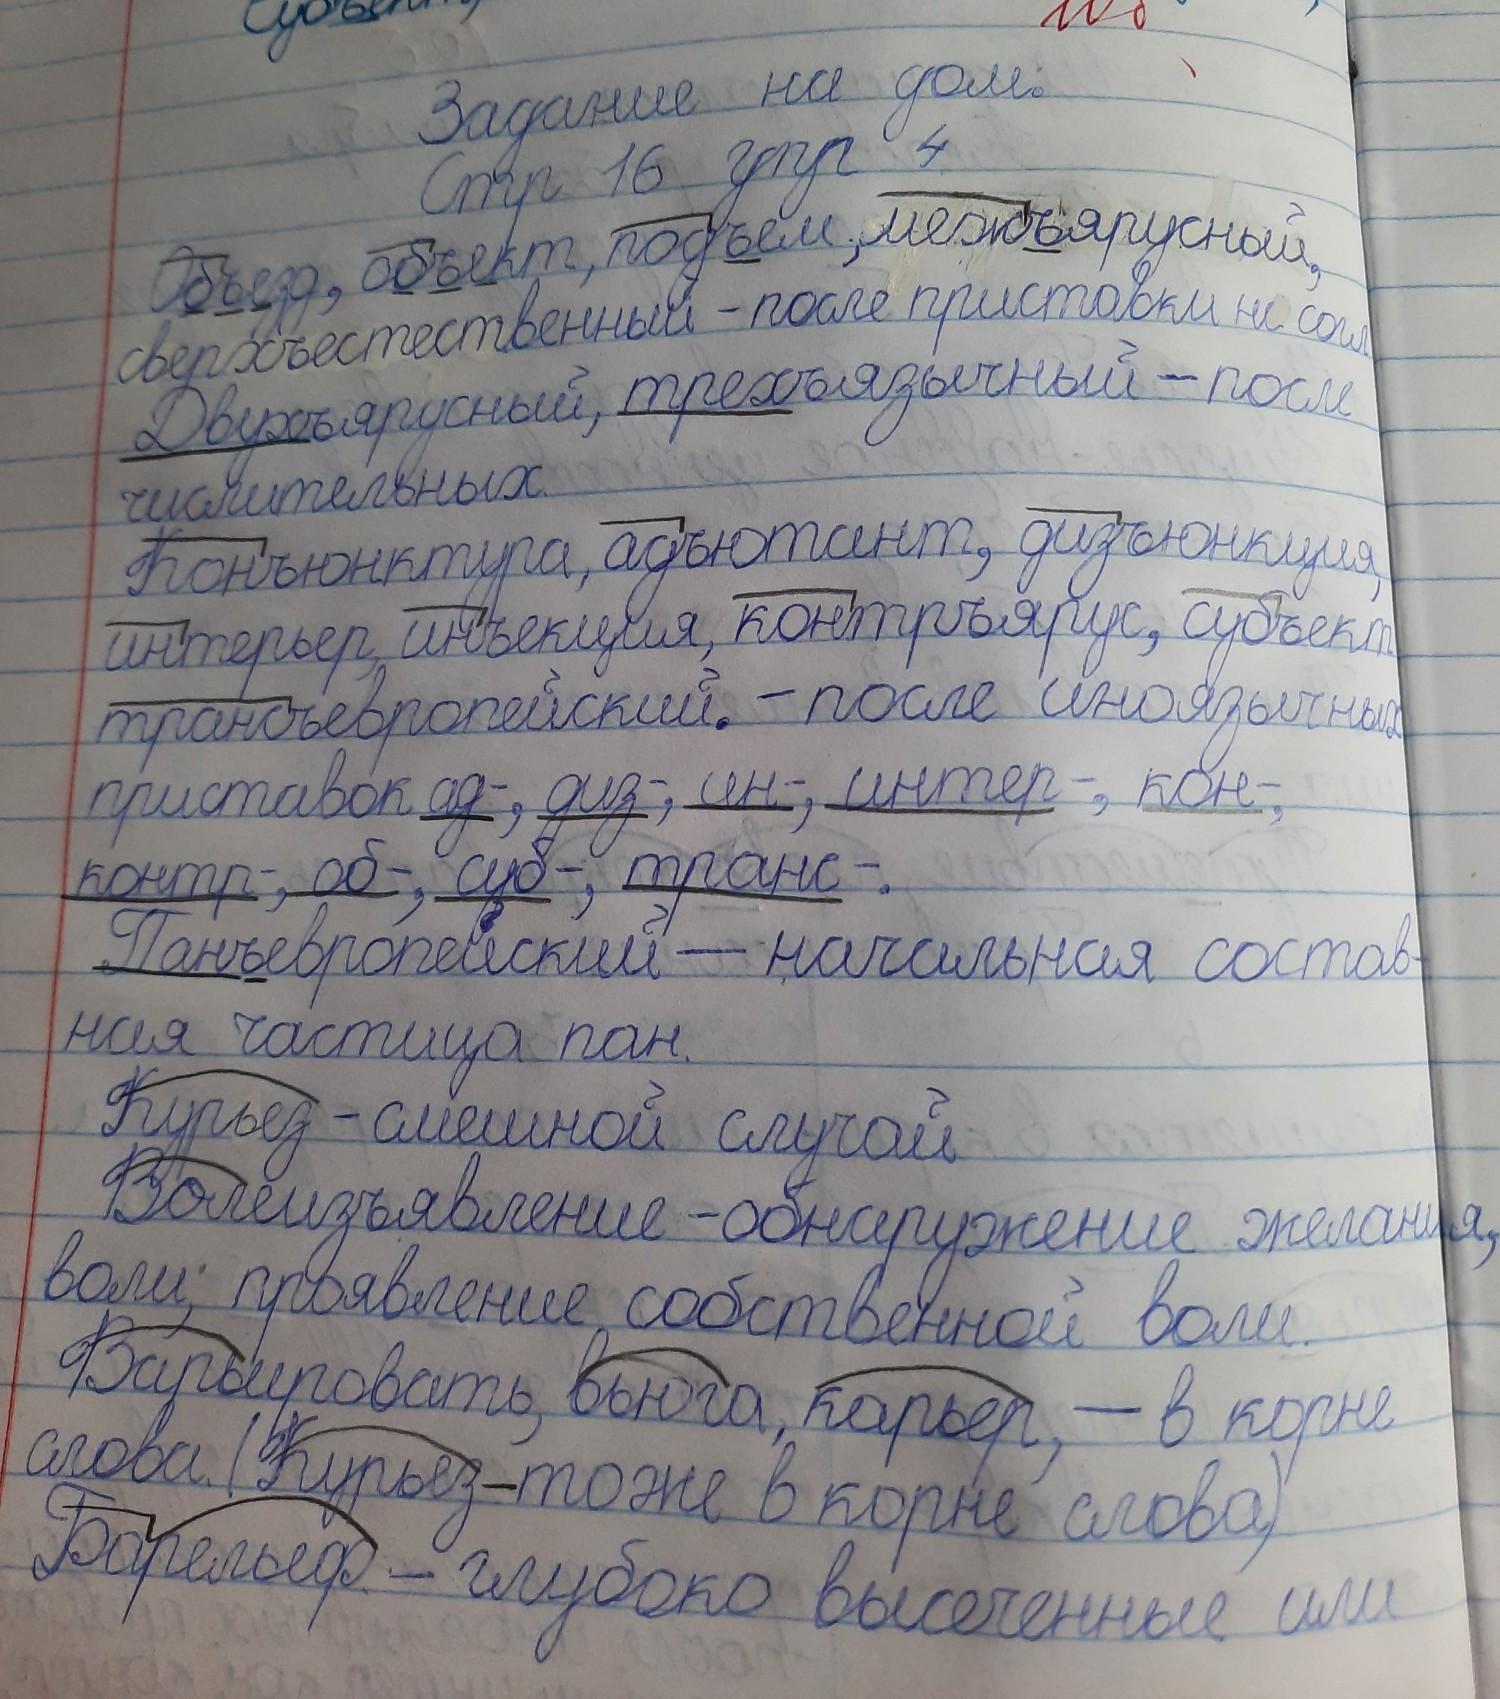 Субъект,
Задание на дом.
Стр 16 упр 4
Объезд, объект, подъем, межъярусный,
сверхъестественный - после приставки на согл
Двухъярусный, трехъязычный - после
числительных.
Конъюнктура, адъютант, дизъюнкция,
интерьер, инъекция, контръярус, субъект
трансъевропейский. - после иноязычных
приставок ад-, диз-, ин-, интер-, кон-,
контр-, об-, суб-, транс-.
Панъевропейский — начальная состав-
ная частица пан.
Курьез - смешной случай
Волеизъявление - обнаружение желания,
воли; проявление собственной воли.
Варьировать, вьюга, карьер, — в корне
слова. (Курьез - тоже в корне слова)
Барельеф. - глубоко высеченные или